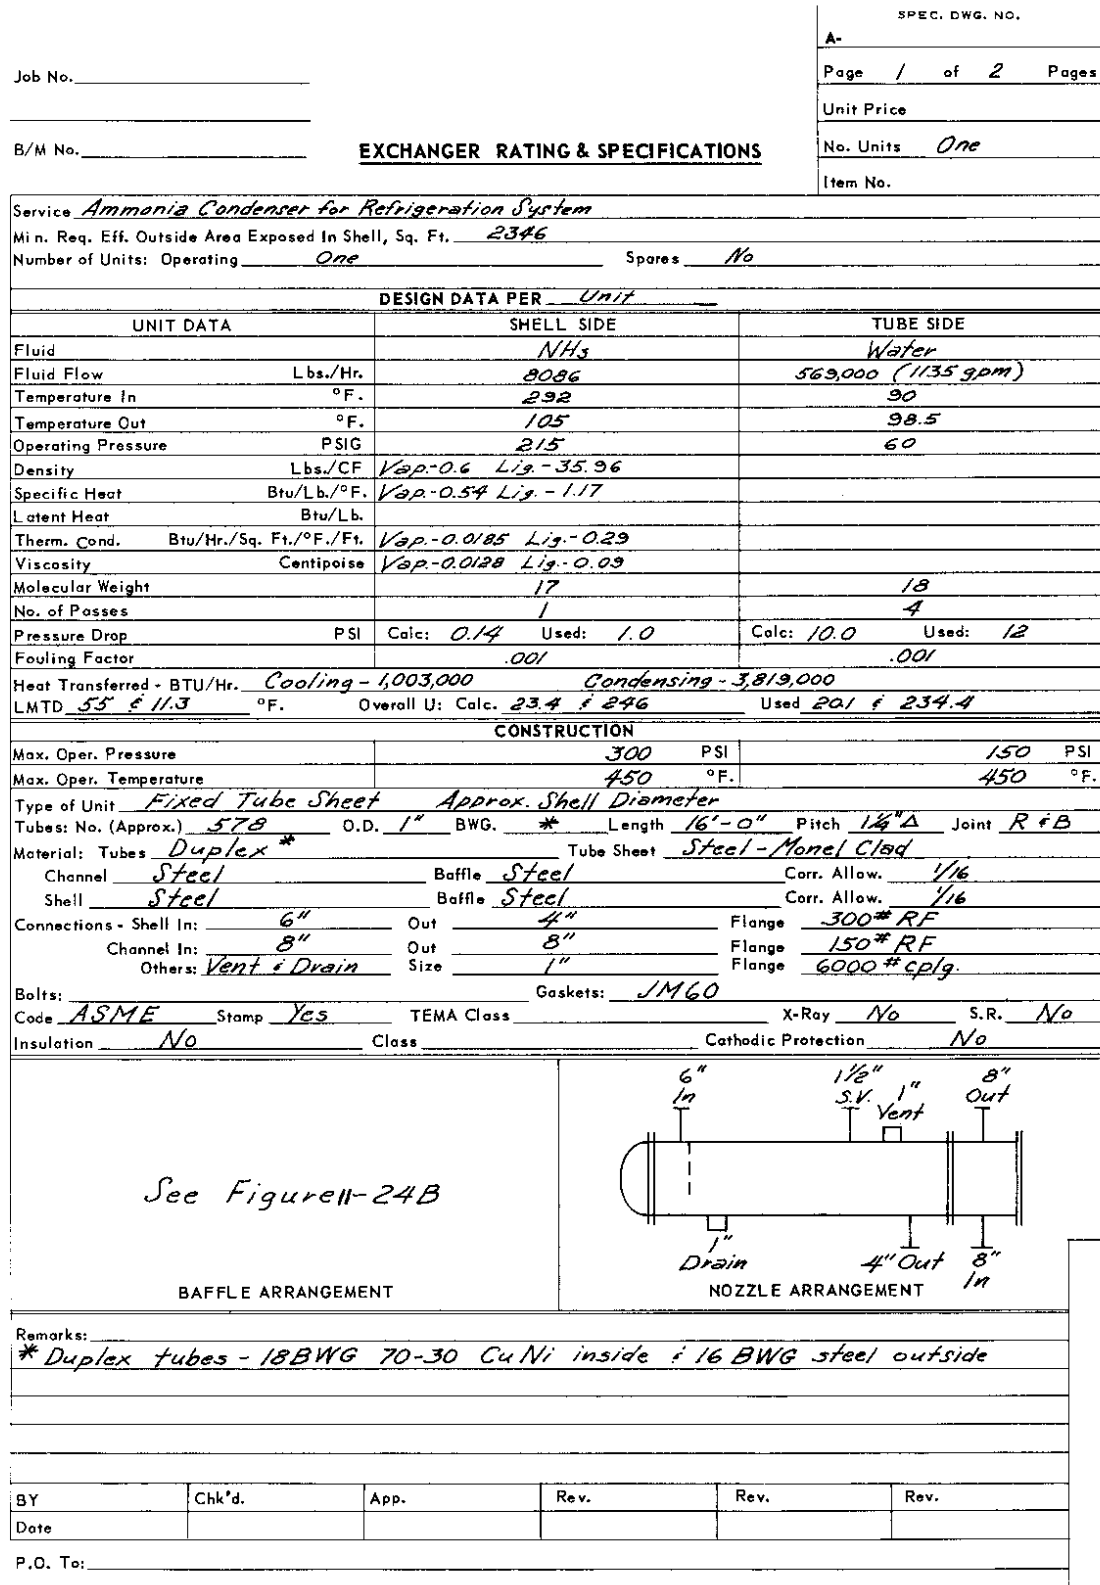 SPEC. DWG. NO.
A-
Job No.
Page 1 of 2 Pages
Unit Price
B/M No.
EXCHANGER RATING & SPECIFICATIONS
No. Units One
Item No.
Service Ammonia Condenser for Refrigeration System
Min. Req. Eff. Outside Area Exposed In Shell, Sq. Ft. 2346
Number of Units: Operating One Spares No
DESIGN DATA PER Unit
UNIT DATA SHELL SIDE TUBE SIDE
Fluid NH3 Water
Fluid Flow Lbs./Hr. 8086 569,000 (1135 gpm)
Temperature In °F. 292 90
Temperature Out °F. 105 98.5
Operating Pressure PSIG 215 60
Density Lbs./CF Vap.-0.6 Liq.-35.96
Specific Heat Btu/Lb./°F. Vap.-0.54 Liq.-1.17
Latent Heat Btu/Lb.
Therm. Cond. Btu/Hr./Sq. Ft./°F./Ft. Vap.-0.0185 Liq.-0.29
Viscosity Centipoise Vap.-0.0128 Liq.-0.09
Molecular Weight 17 18
No. of Passes 1 4
Pressure Drop PSI Calc: 0.14 Used: 1.0 Calc: 10.0 Used: 12
Fouling Factor .001 .001
Heat Transferred - BTU/Hr. Cooling - 1,003,000 Condensing - 3,819,000
LMTD 55 & 11.3 °F. Overall U: Calc. 23.4 & 246 Used 20.1 & 234.4
CONSTRUCTION
Max. Oper. Pressure 300 PSI 150 PSI
Max. Oper. Temperature 450 °F. 450 °F.
Type of Unit Fixed Tube Sheet Approx. Shell Diameter
Tubes: No. (Approx.) 578 O.D. 1" BWG. * Length 16'-0" Pitch 1¼"Δ Joint R & B
Material: Tubes Duplex * Tube Sheet Steel - Monel Clad
Channel Steel Baffle Steel Corr. Allow. 1/16
Shell Steel Baffle Steel Corr. Allow. 1/16
Connections - Shell In: 6" Out 4" Flange 300# RF
Channel In: 8" Out 8" Flange 150# RF
Others: Vent & Drain Size 1" Flange 6000# cplg.
Bolts: Gaskets: JM60
Code ASME Stamp Yes TEMA Class X-Ray No S.R. No
Insulation No Class Cathodic Protection No
See Figure 11-24B
BAFFLE ARRANGEMENT
6" In
1½" S.V.
1" Vent
8" Out
1" Drain
4" Out
8" In
NOZZLE ARRANGEMENT
Remarks:
* Duplex tubes - 18BWG 70-30 CuNi inside & 16 BWG steel outside
BY Chk'd. App. Rev. Rev. Rev.
Date
P.O. To: